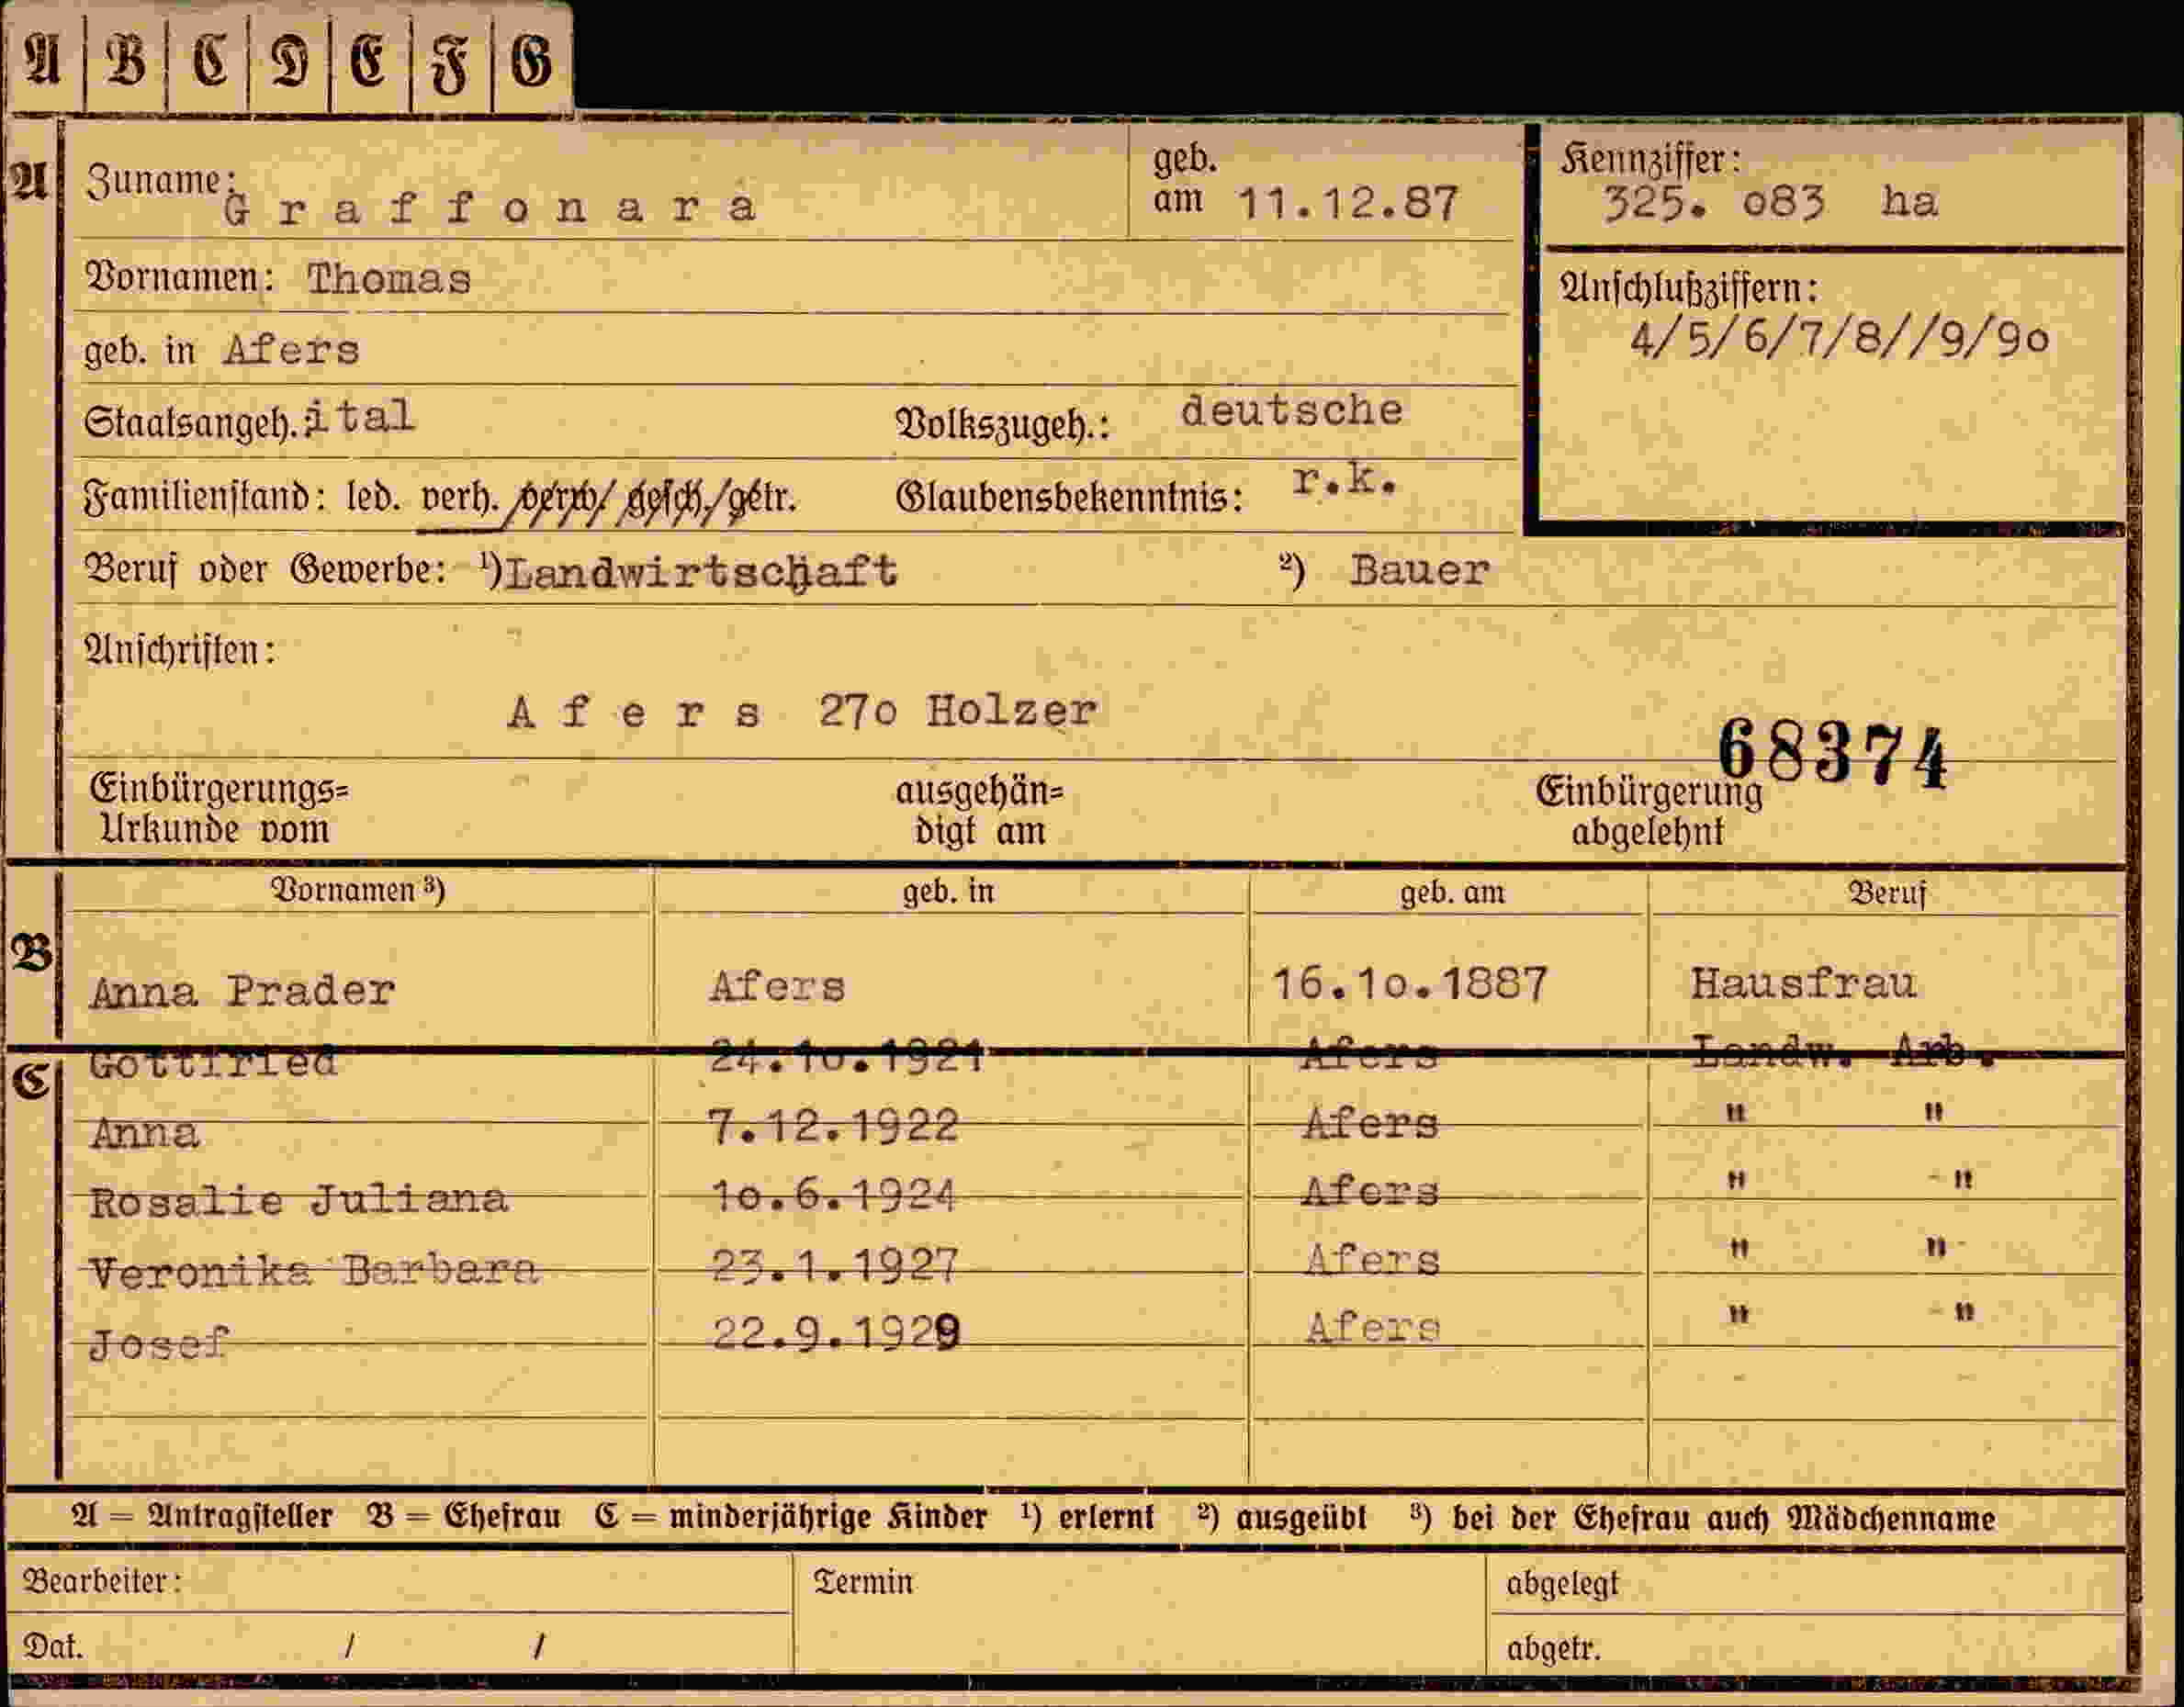 A B C D E F G
A Zuname: Graffonara geb. am 11.12.87 Kennziffer: 325. o83 ha
Vornamen: Thomas
Anschlußziffern:
4/5/6/7/8//9/9o
geb. in Afers
Staatsangeh. ital Volkszugeh.: deutsche
Familienstand: led. verh. verw. gesch. getr. Glaubensbekenntnis: r.k.
Beruf oder Gewerbe: ¹) Landwirtschaft ²) Bauer
Anschriften:
Afers 27o Holzer
68374
Einbürgerungs= ausgehän= Einbürgerung
Urkunde vom digt am abgelehnt
Vornamen ³) geb. in geb. am Beruf
B
Anna Prader Afers 16.1o.1887 Hausfrau
C Gottfried 24.1o.1921 Afers Landw. Arb.
Anna 7.12.1922 Afers " "
Rosalie Juliana 1o.6.1924 Afers " "
Veronika Barbara 23.1.1927 Afers " "
Josef 22.9.1929 Afers " "
A = Antragsteller B = Ehefrau C = minderjährige Kinder ¹) erlernt ²) ausgeübt ³) bei der Ehefrau auch Mädchenname
Bearbeiter: Termin abgelegt
Dat. / / abgetr.